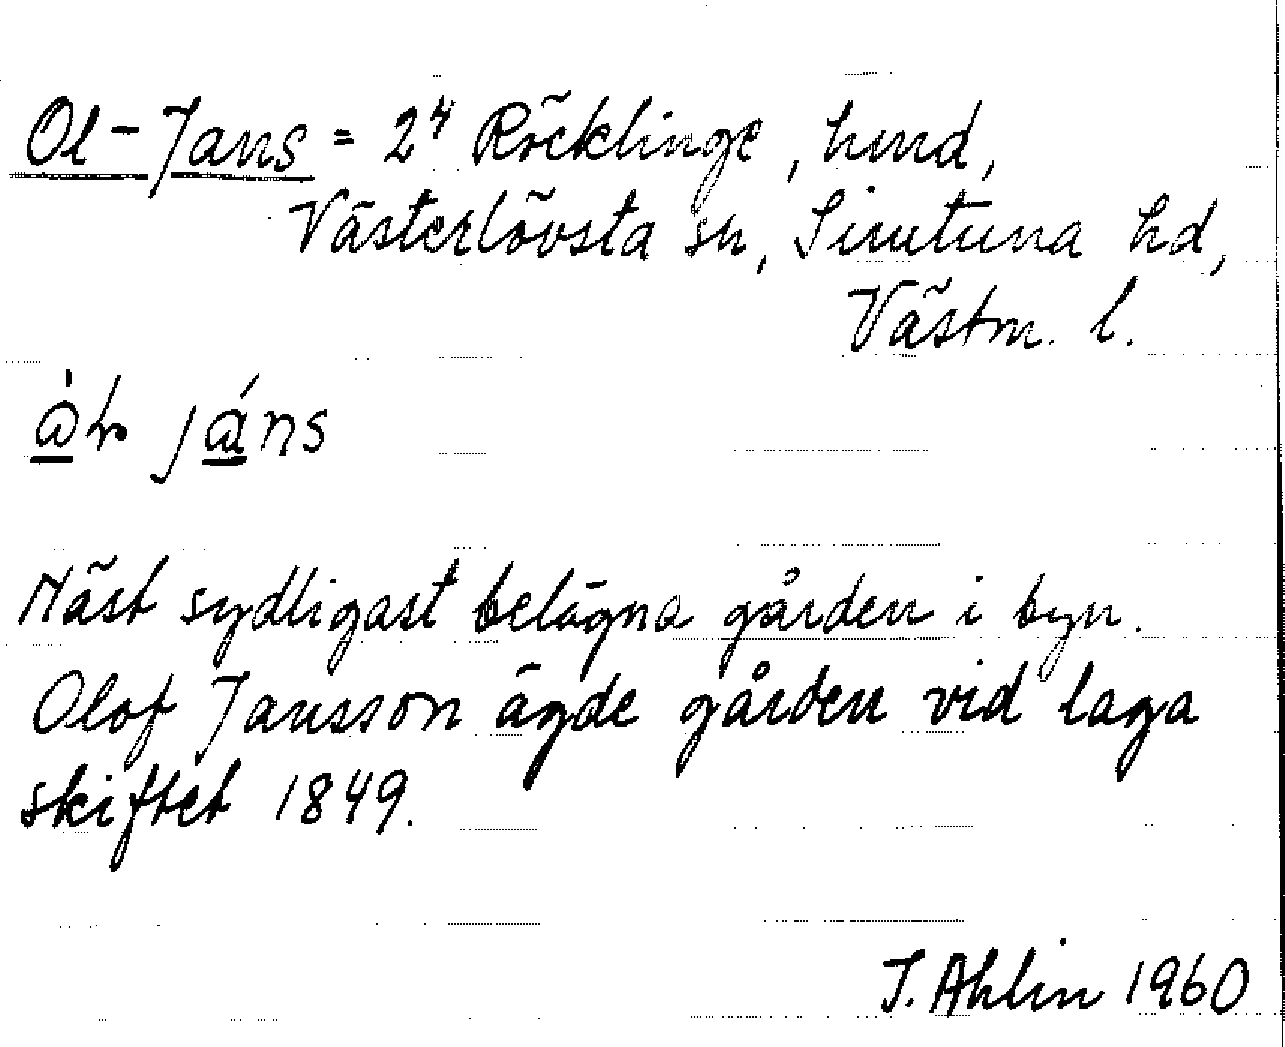 Ol-Jans = 2⁴ Röcklinge, hmd,
Västerlövsta sn, Simtuna hd,
Västm. l.
jans
Näst sydligast belägna gården i byn.
Olof Jansson ägde gården vid laga
skiftet 1849.
J. Ahlin 1960